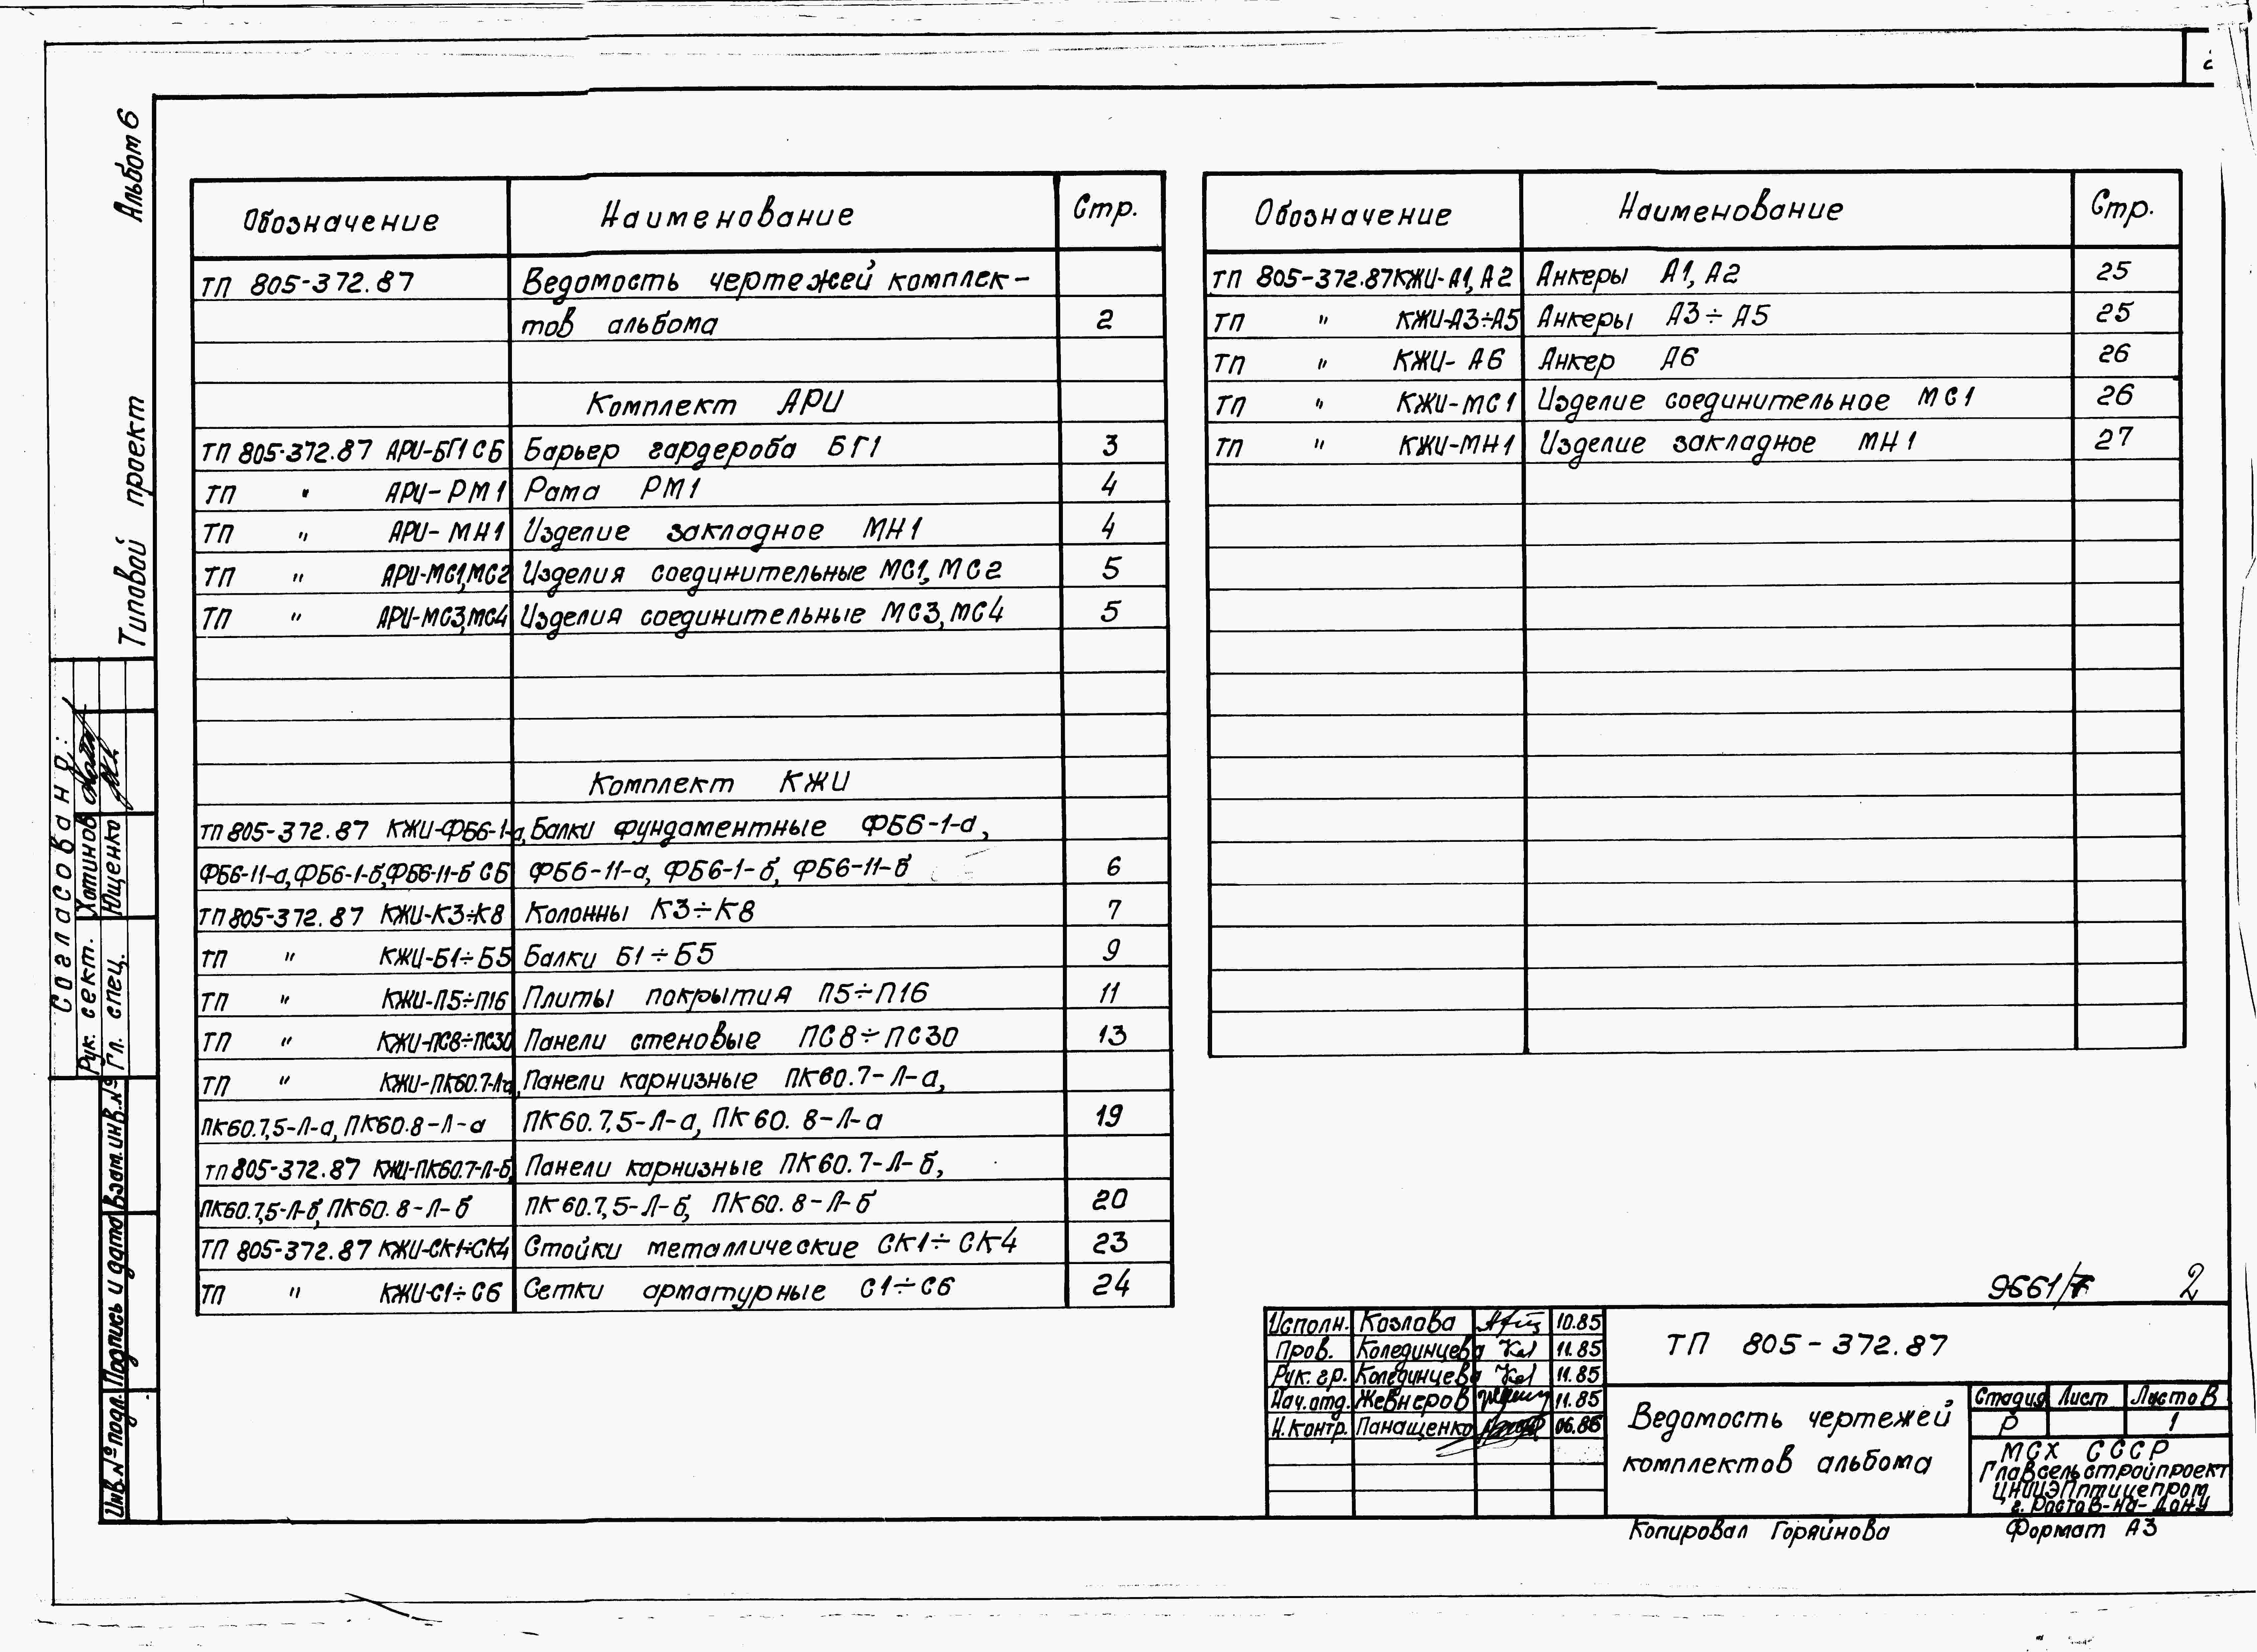 Альбом 6
Типовой проект
Обозначение Наименование Стр.
ТП 805-372.87 Ведомость чертежей комплек-
тов альбома 2
Комплект АРИ
ТП 805-372.87 АРИ-БГ1 СБ Барьер гардероба БГ1 3
ТП " АРИ-РМ1 Рама РМ1 4
ТП " АРИ-МН1 Изделие закладное МН1 4
ТП " АРИ-МС1,МС2 Изделия соединительные МС1, МС2 5
ТП " АРИ-МС3,МС4 Изделия соединительные МС3, МС4 5
Комплект КЖИ
ТП 805-372.87 КЖИ-ФБ6-1-а, Балки фундаментные ФБ6-1-а,
ФБ6-11-а, ФБ6-1-б, ФБ6-11-б СБ ФБ6-11-а, ФБ6-1-б, ФБ6-11-б 6
ТП 805-372.87 КЖИ-К3÷К8 Колонны К3÷К8 7
ТП " КЖИ-Б1÷Б5 Балки Б1÷Б5 9
ТП " КЖИ-П5÷П16 Плиты покрытия П5÷П16 11
ТП " КЖИ-ПС8÷ПС30 Панели стеновые ПС8÷ПС30 13
ТП " КЖИ-ПК60.7-Л-а, Панели карнизные ПК60.7-Л-а,
ПК60.7,5-Л-а, ПК60.8-Л-а ПК60.7,5-Л-а, ПК60.8-Л-а 19
ТП 805-372.87 КЖИ-ПК60.7-Л-б, Панели карнизные ПК60.7-Л-б,
ПК60.7,5-Л-б, ПК60.8-Л-б ПК60.7,5-Л-б, ПК60.8-Л-б 20
ТП 805-372.87 КЖИ-СК1÷СК4 Стойки металлические СК1÷СК4 23
ТП " КЖИ-С1÷С6 Сетки арматурные С1÷С6 24
Обозначение Наименование Стр.
ТП 805-372.87КЖИ-А1, А2 Анкеры А1, А2 25
ТП " КЖИ-А3÷А5 Анкеры А3÷А5 25
ТП " КЖИ-А6 Анкер А6 26
ТП " КЖИ-МС1 Изделие соединительное МС1 26
ТП " КЖИ-МН1 Изделие закладное МН1 27
Согласовано:
Рук. сект. Хотинов
Гл. спец. Ющенко
Взам.инв.№
Подпись и дата
Инв.№ подл.
2
Исполн. Козлова 10.85
Пров. Колединцева 11.85
Рук. гр. Колединцева 11.85
Нач.отд. Жевнеров 11.85
Н.контр. Панащенко 06.86
ТП 805-372.87
Ведомость чертежей
комплектов альбома
Стадия Лист Листов
Р 1
МСХ СССР
Главсельстройпроект
ЦНИИЭПптицепром
г. Ростов-на-Дону
Копировал Горяйнова Формат А3